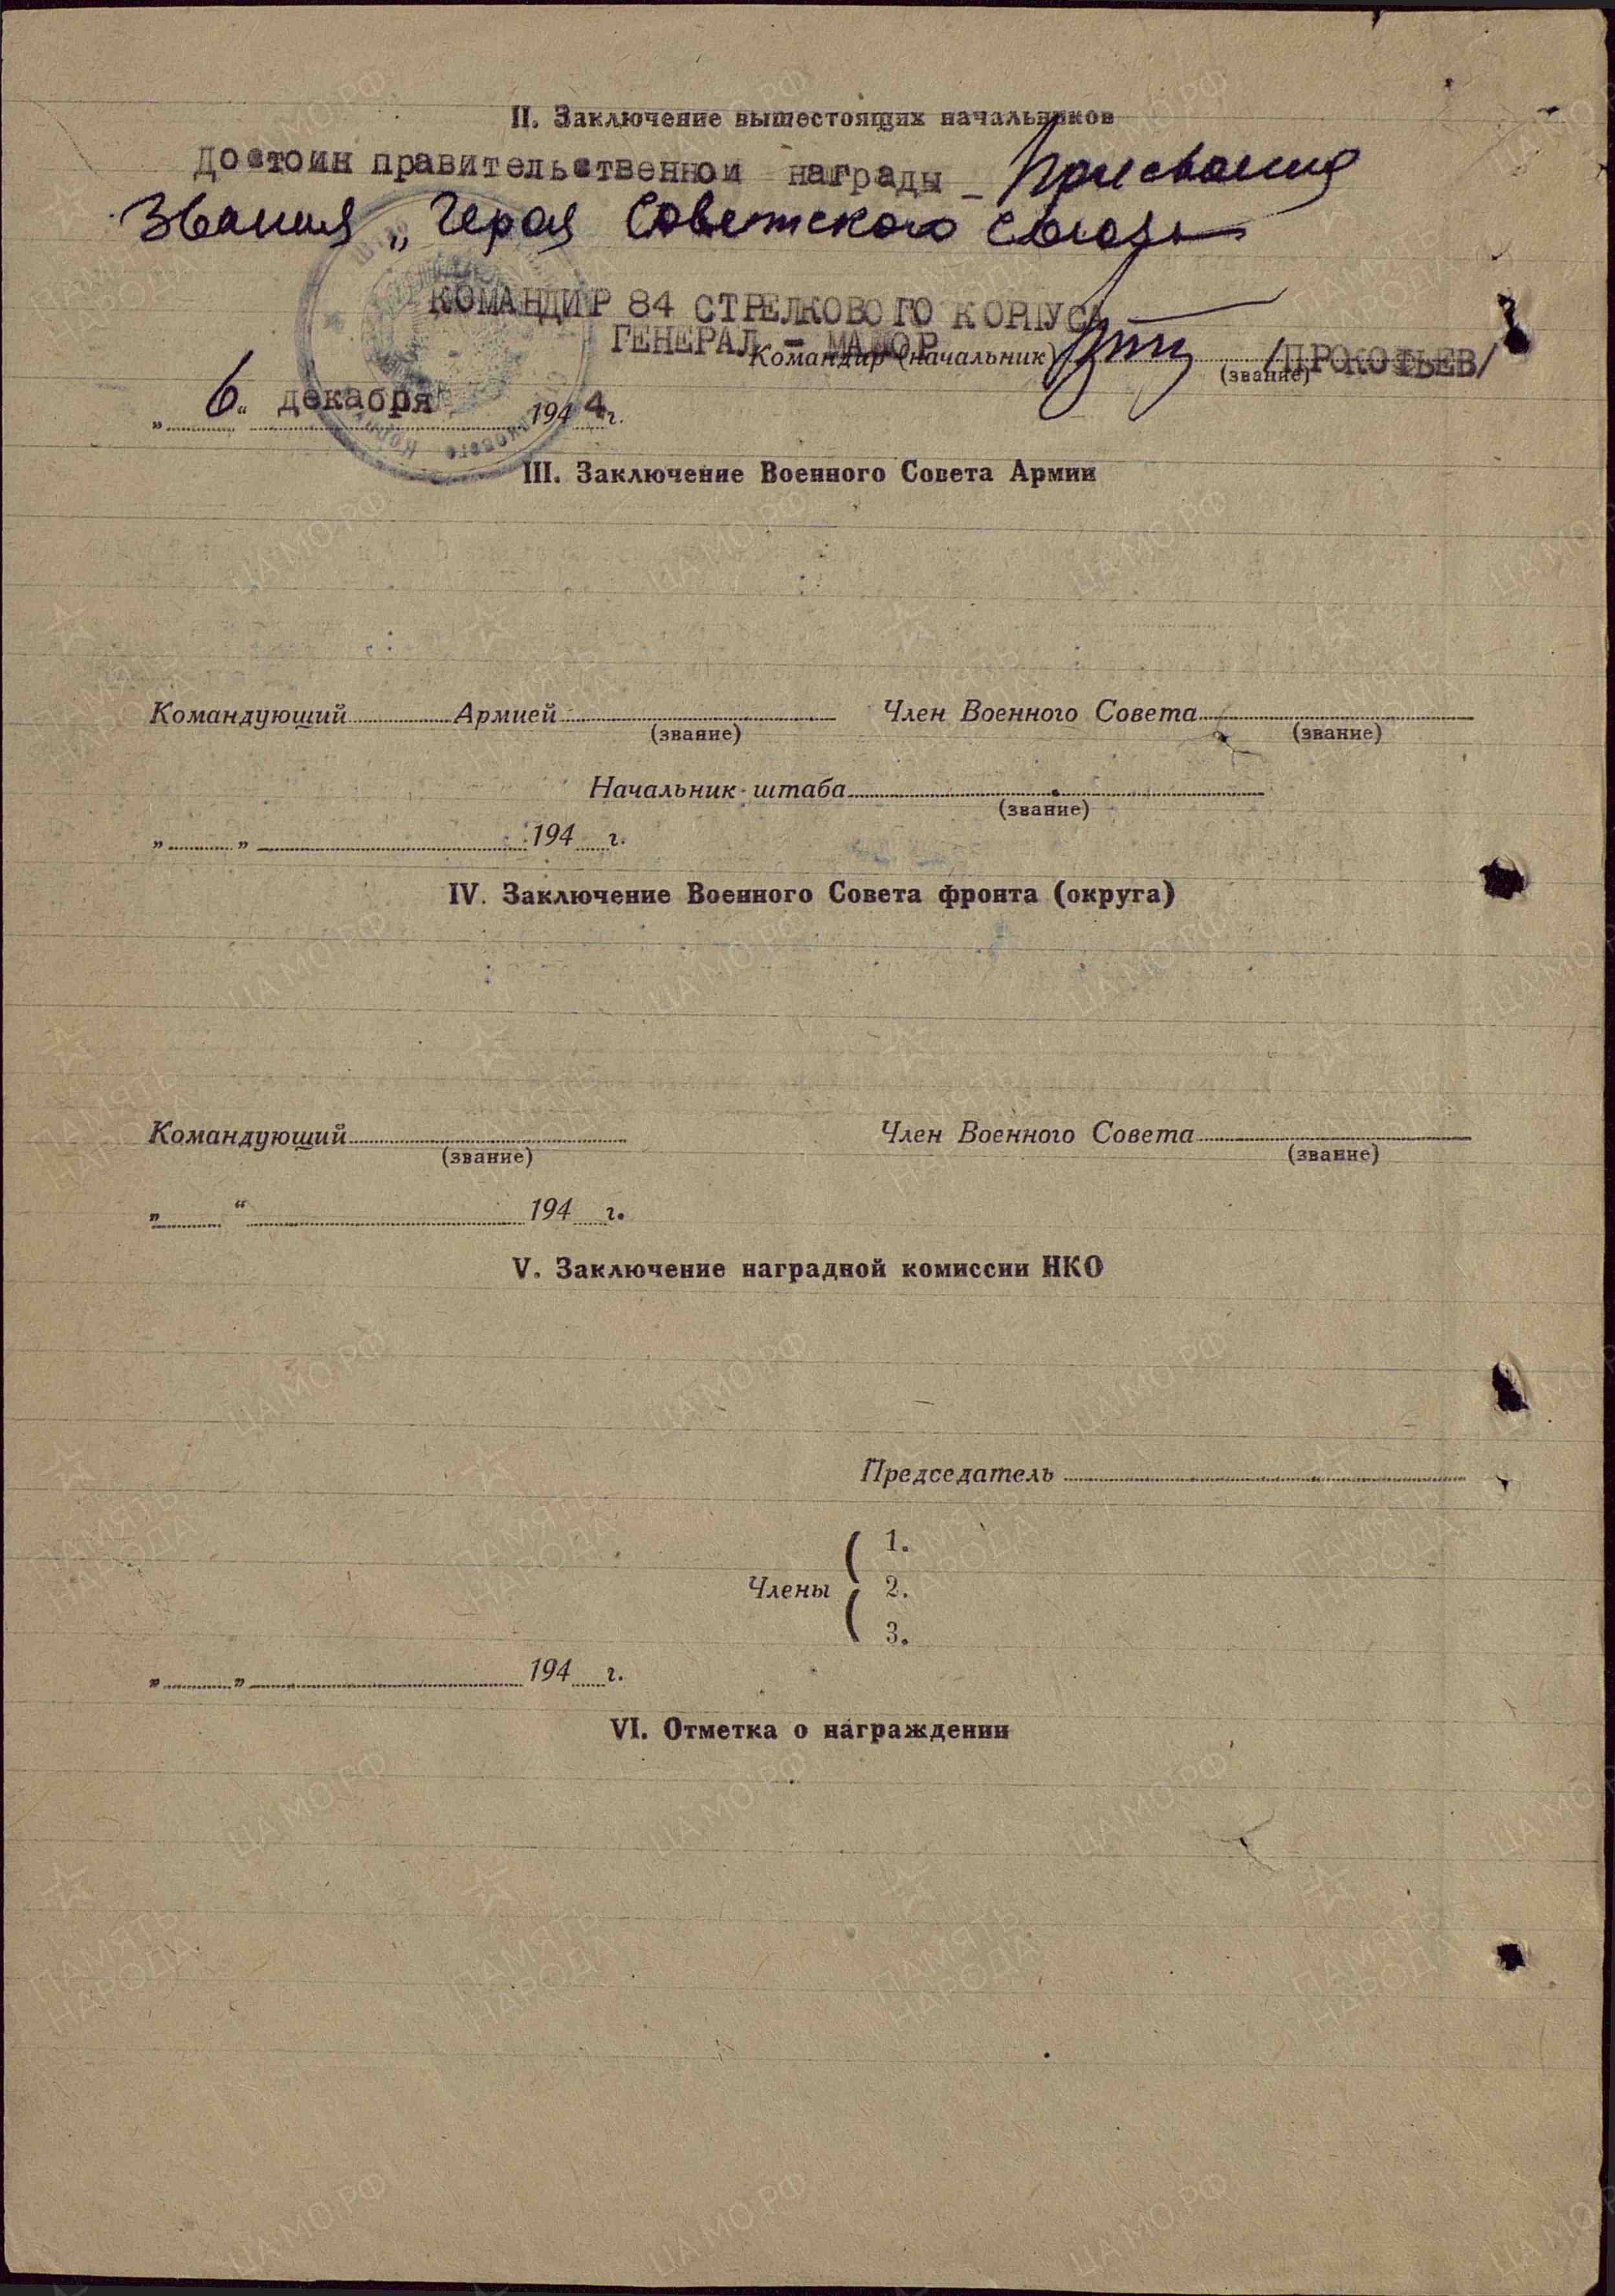 II. Заключение вышестоящих начальников
Достоин правительственной награды – Присвоения
Звания „Героя Советского Союза
КОМАНДИР 84 СТРЕЛКОВОГО КОРПУСА
ГЕНЕРАЛ – МАЙОР
Командир (начальник) /ПРОКОФЬЕВ/
(звание)
„6“ декабря 1944 г.
III. Заключение Военного Совета Армии
Командующий Армией Член Военного Совета
(звание) (звание)
Начальник штаба
(звание)
„ „ 194 г.
IV. Заключение Военного Совета фронта (округа)
Командующий Член Военного Совета
(звание) (звание)
„ “ 194 г.
V. Заключение наградной комиссии НКО
Председатель
1.
Члены 2.
3.
„ „ 194 г.
VI. Отметка о награждении
ПАМЯТЬ НАРОДА
ЦА МО РФ